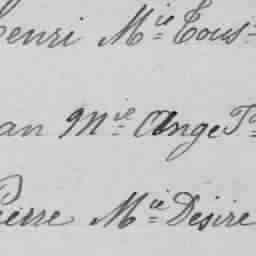 Henri Mie Touss
an Mie Ange T
Pierre Mie Désiré